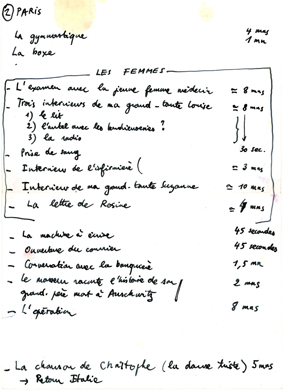 ② PARIS
La gymnastique 4 mns
La boxe 1 mn
LES FEMMES
- L'examen avec la jeune femme médecin ≃ 8 mns
- Trois interviews de ma grand-tante Louise ≃ 8 mns
1) le lit
2) l'hôtel avec les
3) la radio
- Prise de sang 30 sec.
- Interview de l'infirmière ≃ 3 mns
- Interview de ma grand-tante Suzanne ≃ 10 mns
- La lettre de Rosine ≃ mns
- La machine à écrire 45 secondes
- Ouverture du courrier 45 secondes
- Conversation avec la banquière 1,5 mn
- Le monsieur raconte l'histoire de son
grand-père mort à Auschwitz 2 mns
- L'opération 8 mns
- La chanson de Christophe (la danse triste) 5 mns
→ Retour Italie